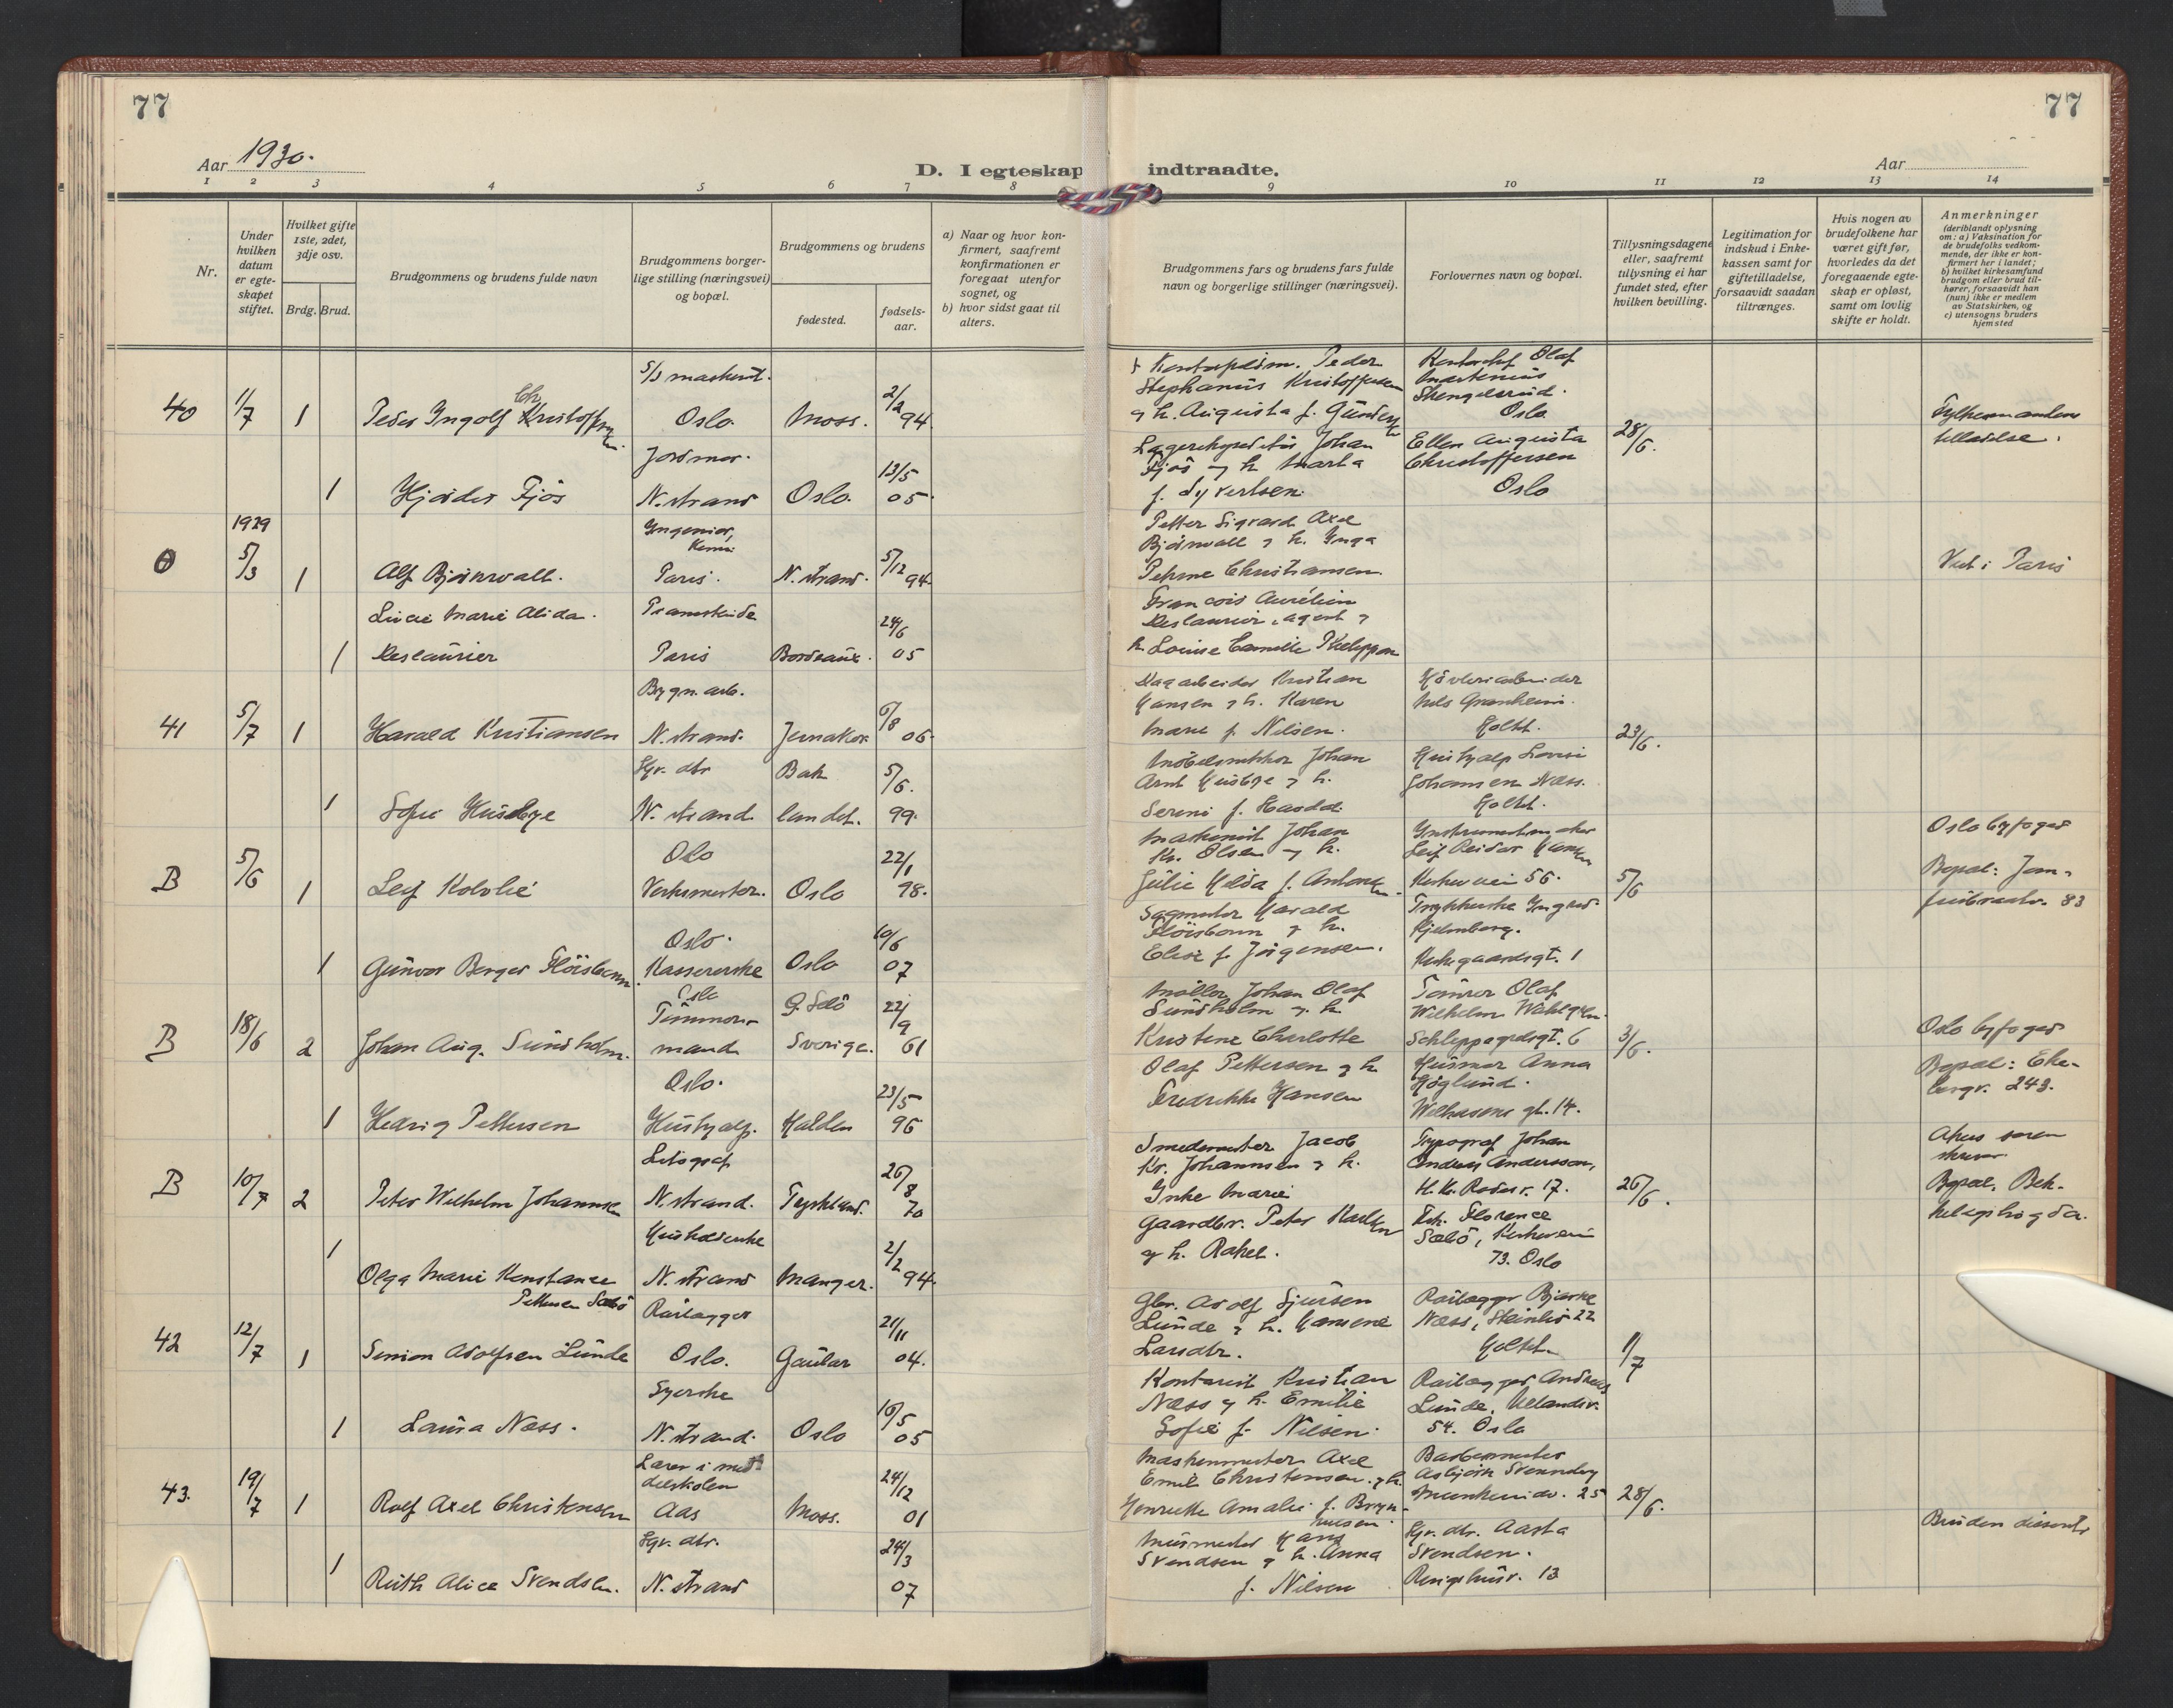 77
77
Aar 1930.
D. I egteskap indtraadte.
Aar
1 2 3 4 5 6 7 8 9 10 11 12 13 14
Nr.
Under hvilken datum er egteskapet stiftet.
Hvilket gifte 1ste, 2det, 3dje osv.
Brdg. Brud.
Brudgommens og brudens fulde navn
Brudgommens borgerlige stilling (næringsvei) og bopæl.
Brudgommens og brudens
fødested.
fødselsaar.
a) Naar og hvor konfirmert, saafremt konfirmationen er foregaat utenfor sognet, og
b) hvor sidst gaat til alters.
Brudgommens fars og brudens fars fulde navn og borgerlige stillinger (næringsvei).
Forlovernes navn og bopæl.
Tillysningsdagene eller, saafremt tillysning ei har fundet sted, efter hvilken bevilling.
Legitimation for indskud i Enkekassen samt for giftetilladelse, forsaavidt saadan tiltrænges.
Hvis nogen av brudefolkene har været gift før, hvorledes da det foregaaende egteskap er opløst, samt om lovlig skifte er holdt.
Anmerkninger
(deriblandt oplysning om: a) Vaksination for de brudefolks vedkommende, der ikke er konfirmert her i landet; b) hvilket kirkesamfund brudgom eller brud tilhører, forsaavidt han (hun) ikke er medlem av Statskirken, og c) utensogns bruders hjemsted
40 1/7 1 Peder Ingolf Kristoffersen
Oslo. Moss. 2/2 94.
Stephanus Kristoffersen
& h. Augusta f. Gundersen
Olaf
Martinius
Stengelsrud.
Oslo
28/6.
Fylkesmandens
tilladelse.
1 Hjørdis Fjøs
Jordmor.
N.strand Oslo. 13/5 05.
Johan
Fjøs & h. Marta
f. Syvertsen.
Ellen Augusta
Christoffersen
Oslo
0 1929 5/3 1 Alf Bjørnvall.
Ingeniør,
Paris. N. strand. 5/12 94.
Petter Sigvard Axel
Bjørnvall & h. Inga
Christiansen.
Viet i Paris
1 Marie Alida
Paris Bordeaux. 24/6 05
François Aurélien
agent &
h. Louise Camille
41 5/7 1 Harald Kristiansen
Bygn. arb.
N. strand. 6/8 06.
Dagarbeider Kristian
Hansen & h. Karen
Marie f. Nilsen.
Høvleriarbeider
Nils Granheim.
Holtet.
23/6.
1 Sofie Husbye
Hr. dtr
N. strand. Bak landet. 5/6. 99.
Johan
Arnt Husbye & h.
Hushjælp
Johansen Næss.
Holtet.
B 5/6 1 Leif Kolvlie
Oslo
Verksmester. Oslo 22/1 98.
Maskinist Johan
Kr. Olsen & h.
Julie Hilda f. Antonsen
Instrumentmaker
Leif Reidar Hansen
Kirkeveien 56.
5/6
Oslo byfoged
Bopæl:
83
1 Gunvor Berger Fløisbonn.
Oslo.
Kassererske Oslo 10/6 07
Sagmester Harald
Fløisbonn & h.
Elise f. Jørgensen.
Kirkegaardsgt. 1
B 18/6 2 Johan Aug. Sundholm.
Oslo
Tømmermand
Sverige. 22/9 61
Møller Johan Olof
Sundholm & h.
Kristine Charlotte
Tømrer Olaf
Wilhelm
Schleppegrelsgt. 6
3/6.
Oslo byfoged
Bopæl: Ekebergv. 243.
1 Hedvig Pettersen
Oslo.
Hushjælp. Halden 23/5 96
Olaf Pettersen & h.
Fredrikke Hansen
Husmor Anna
Høglund.
gt. 14.
B 10/7 2 Peter Wilhelm Johannsen
Litograf
N. strand. Tyskland. 26/8 70
Smedemester Jacob
Kr. Johannsen & h.
Inke Marie
Typograf Johan
Andreas Andersson,
17.
26/6.
Akers sorenskriver
Bopæl. Bekkelagshøgda.
1 Olga Marie Konstance
Pettersen Sæbø
Husholderske
N. strand Manger. 2/2 94.
Gaardbr. Peter Karlsen
& h. Rakel.
Frk. Florence
Sæbø, Kirkeveien
73. Oslo
42 12/7 1 Simon Adolfsen Lunde
Rørlægger
Oslo. Gaular 21/11 04.
Gbr. Adolf Sjursen
Lunde & h. Hansine
Larsdtr.
Rørlægger Bjarne
Næss, Steinlia 22
Holtet.
11/7
1 Laura Næss.
Syerske
N. strand. Oslo 16/5 05
Kontorist Kristian
Næss & h. Emilie
Sofie f. Nilsen.
Rørlægger Andreas
Lunde, Uelandsv.
54. Oslo
43. 19/7 1 Rolf Axel Christensen
Lærer i middelskolen
Aas Moss. 24/12 01
Maskinmester Axel
Emil Christensen. & h.
Henriette Amalie f. Brynhilsen.
Barbermester
Asbjørn
25
28/6.
Bruden dissenter
1 Ruth Alice Svendsen.
Hr. dtr.
N. strand 24/3 07
Murmester Hans
Svendsen & h. Anna
f. Nilsen
Hr. dtr. Aasta
Svendsen.
13